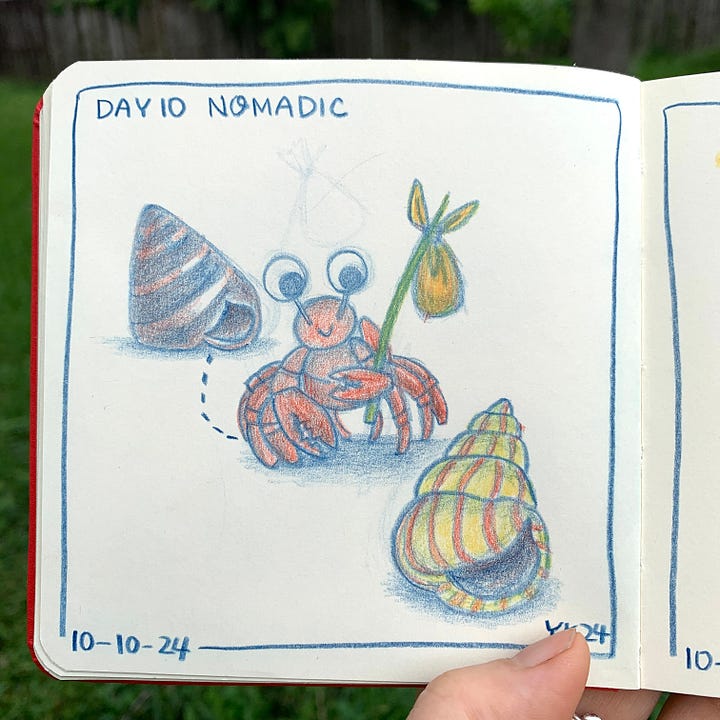 DAY 10 NOMADIC
10-10-24
24
10-